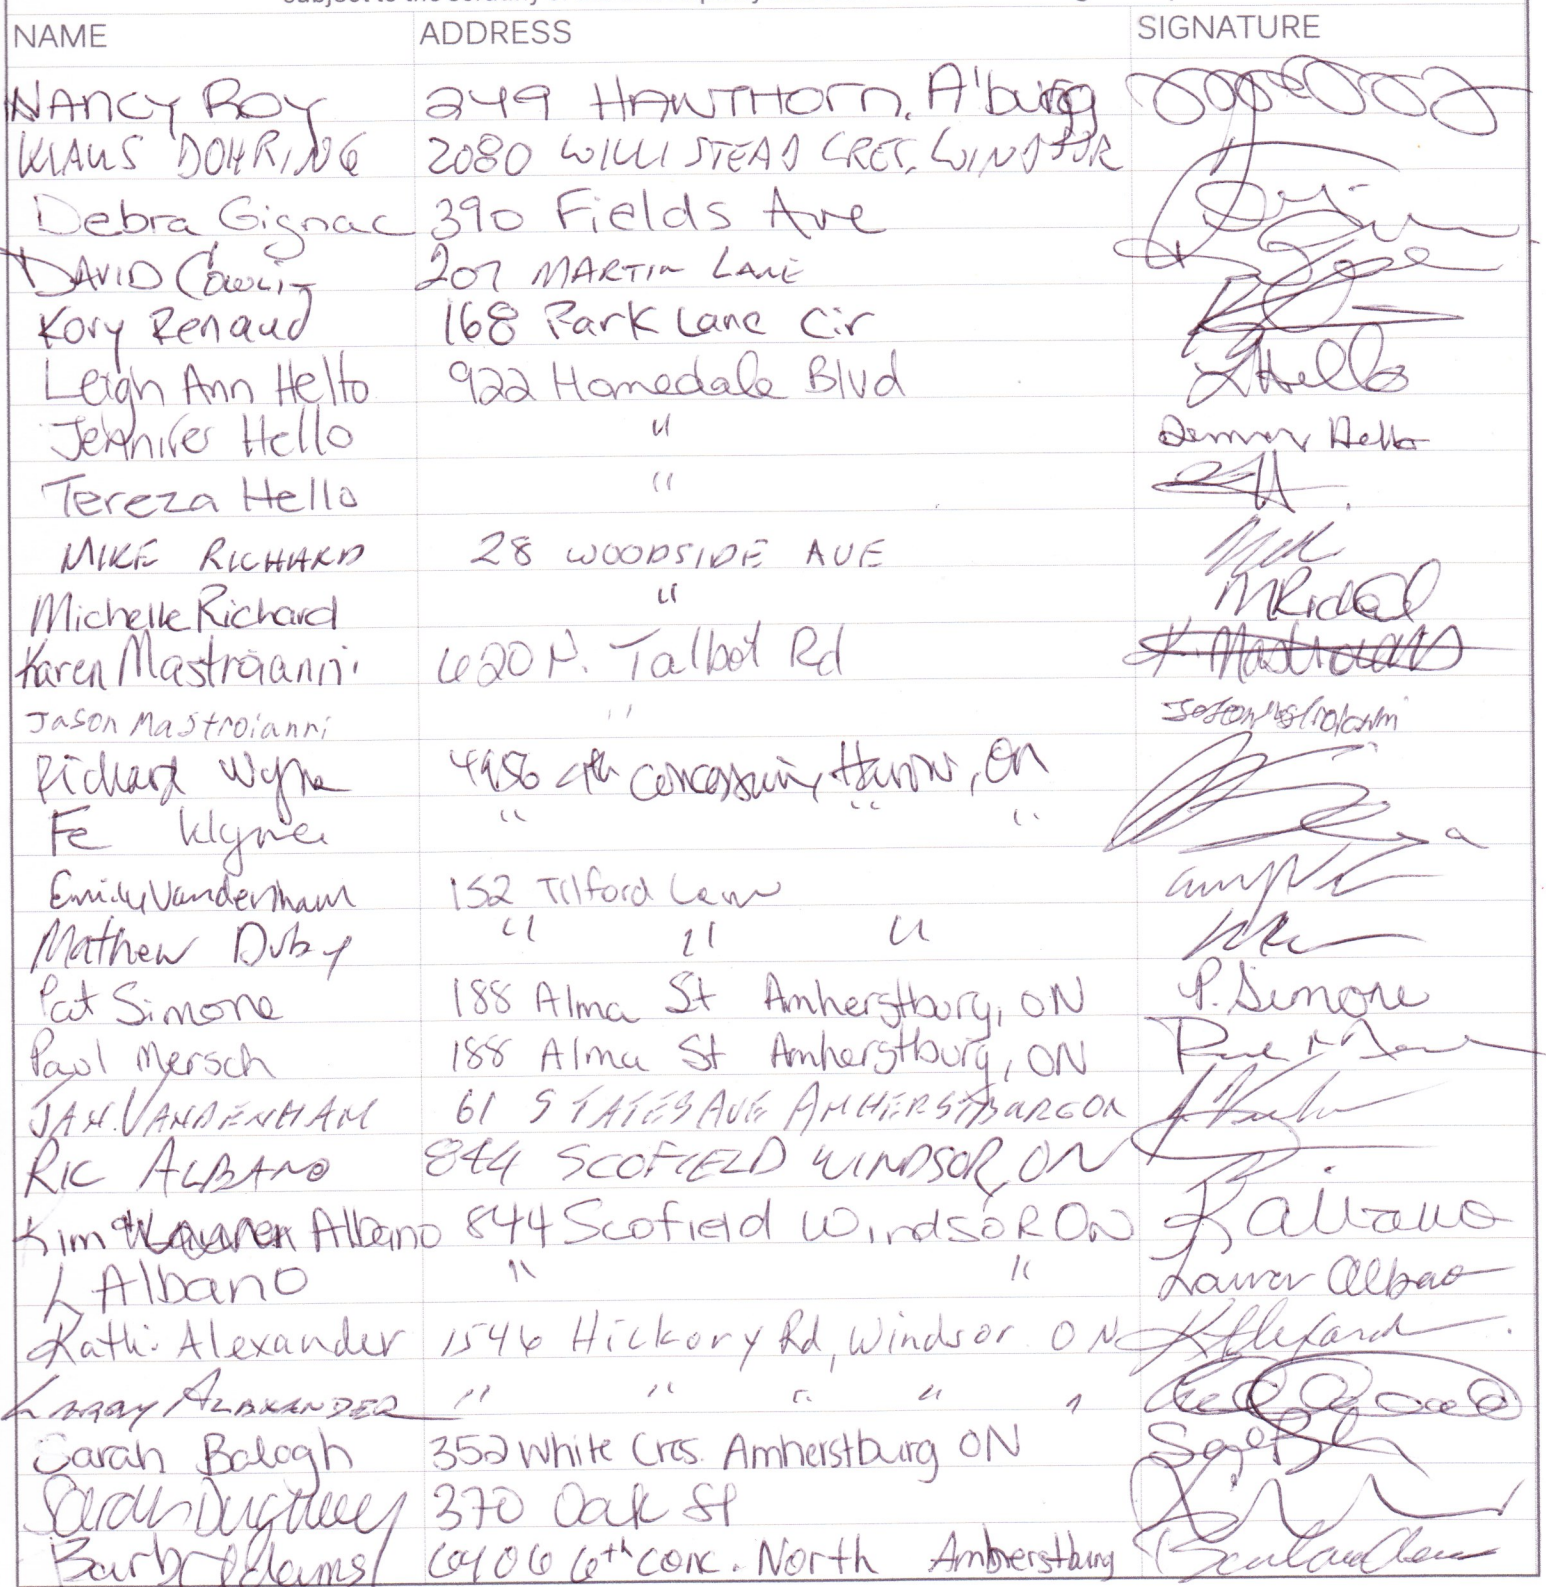 NAME ADDRESS SIGNATURE
NANCY ROY 249 HAWTHORN. A'burg
KLAUS DOHRING 2080 WILLISTEAD CRES. WINDSOR
Debra Gignac 390 Fields Ave
DAVID 207 MARTIN LANE
Kory Renaud 168 Park Lane Cir
Leigh Ann Hello 922 Homedale Blvd LHello
Jennifer Hello " Hello
Tereza Hello "
MIKE RICHARD 28 WOODSIDE AVE
Michelle Richard " MRichard
Karen Mastroianni 620 N. Talbot Rd K. Mastroianni
Jason Mastroianni " Jason Mastroianni
Richard 4th Concession, Harrow, ON
Fe " " "
Emily Vandenham 152 Tilford Lane
Mathew Duby " " "
Pat Simone 188 Alma St Amherstburg, ON P. Simone
Paul Mersch 188 Alma St Amherstburg, ON
JAN. VANDENHAM 61 STATES AVE AMHERSTBURG ON
RIC ALBANO 844 SCOFIELD WINDSOR, ON
Kim Albano 844 Scofield Windsor ON K Albano
L Albano " " Lauren Albano
Kathi Alexander 1546 Hickory Rd, Windsor ON K Alexander
Larry ALEXANDER " " " " "
Sarah Balogh 352 White Cres. Amherstburg ON
Sarah 370 Oak St
Barb Adams 6406 6th conc. North Amherstburg